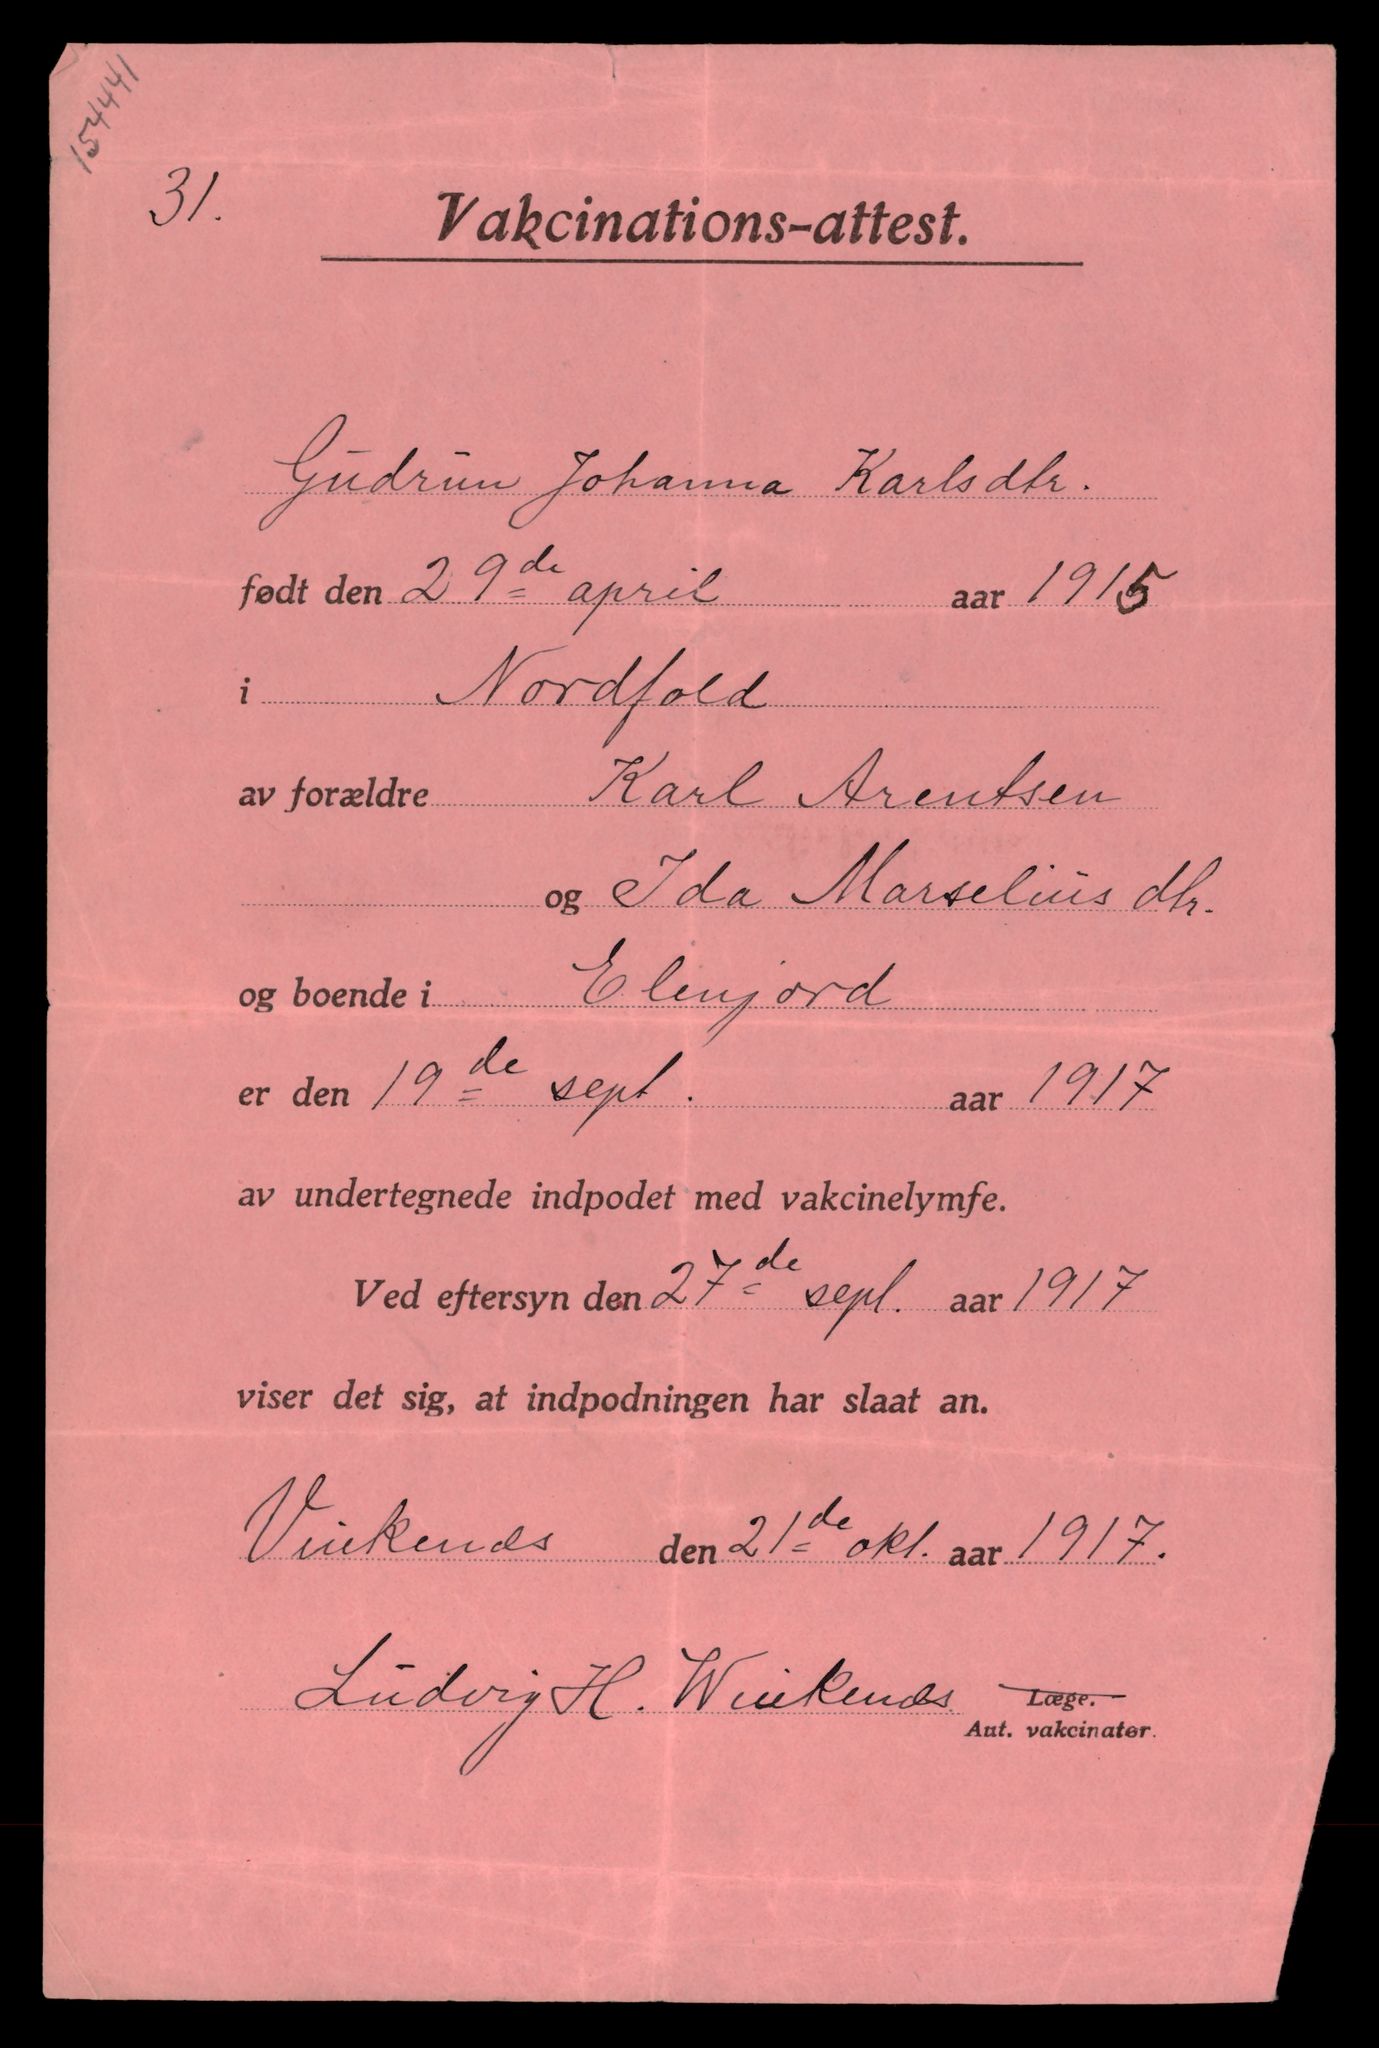 154441
31.
Vakcinations-attest.
Gudrun Johanna Karlsdtr.
født den 29de april aar 1915
i Nordfold
av forældre Karl Arentsen
og Ida Marselius dtr.
og boende i Elenjord
er den 19de sept. aar 1917
av undertegnede indpodet med vakcinelymfe.
Ved eftersyn den 27de sept. aar 1917
viser det sig, at indpodningen har slaat an.
Vinkenæs den 21de okt. aar 1917.
Ludvig H. Winkenæs Læge.
Aut. vakcinatør.